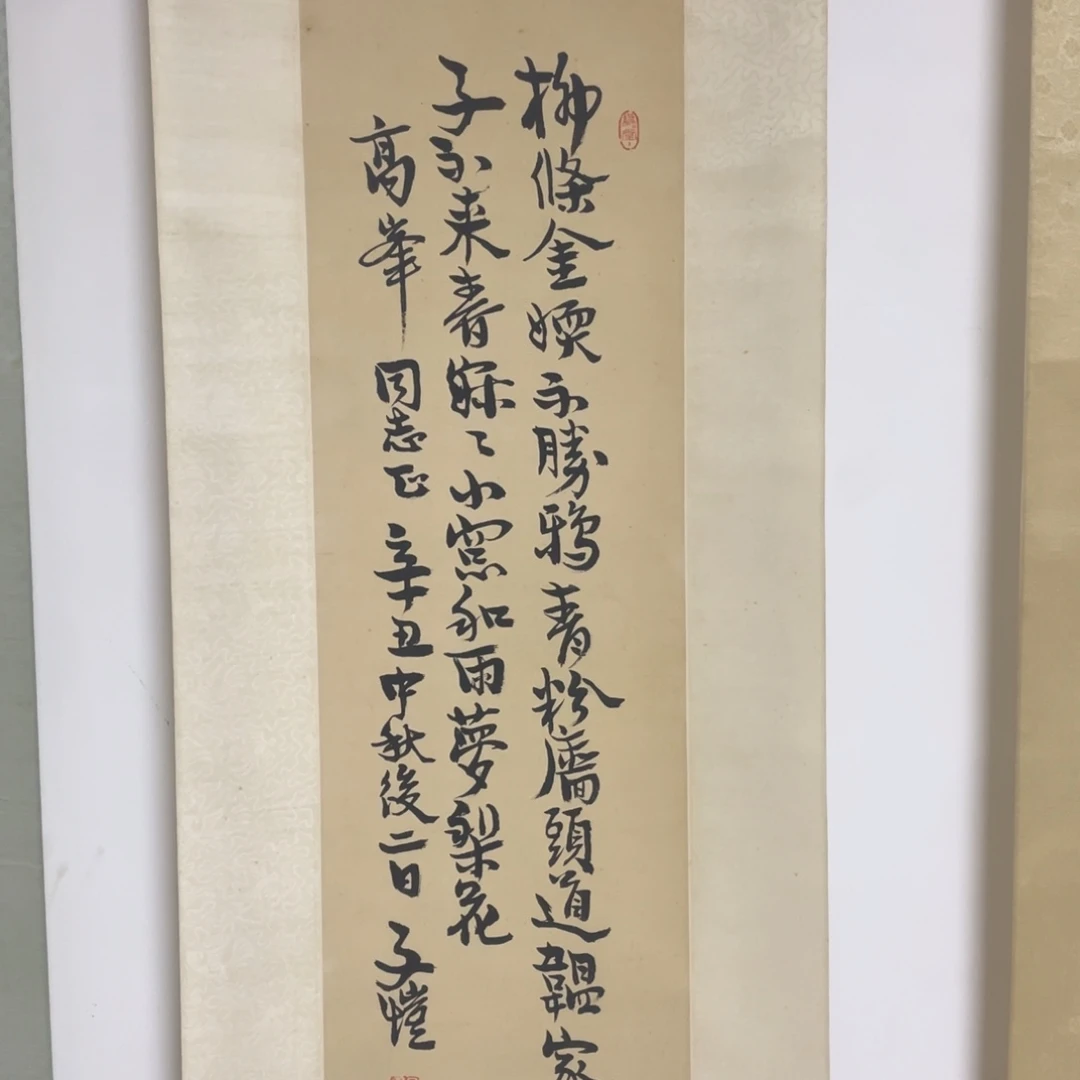 柳條金嫩不勝鴉青粉牆頭道韞家
子不来春寂〻小窓和雨夢梨花
高峯同志正 辛丑中秋後二日 子愷